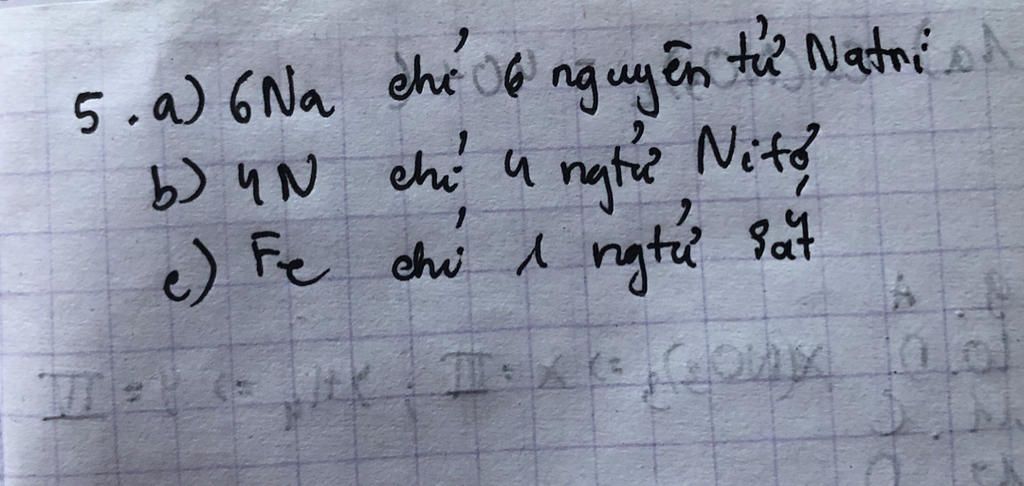 5. a) 6Na chỉ 6 nguyên tử Natri
b) 4N chỉ 4 ngtử Nitơ
c) Fe chỉ 1 ngtử Sắt